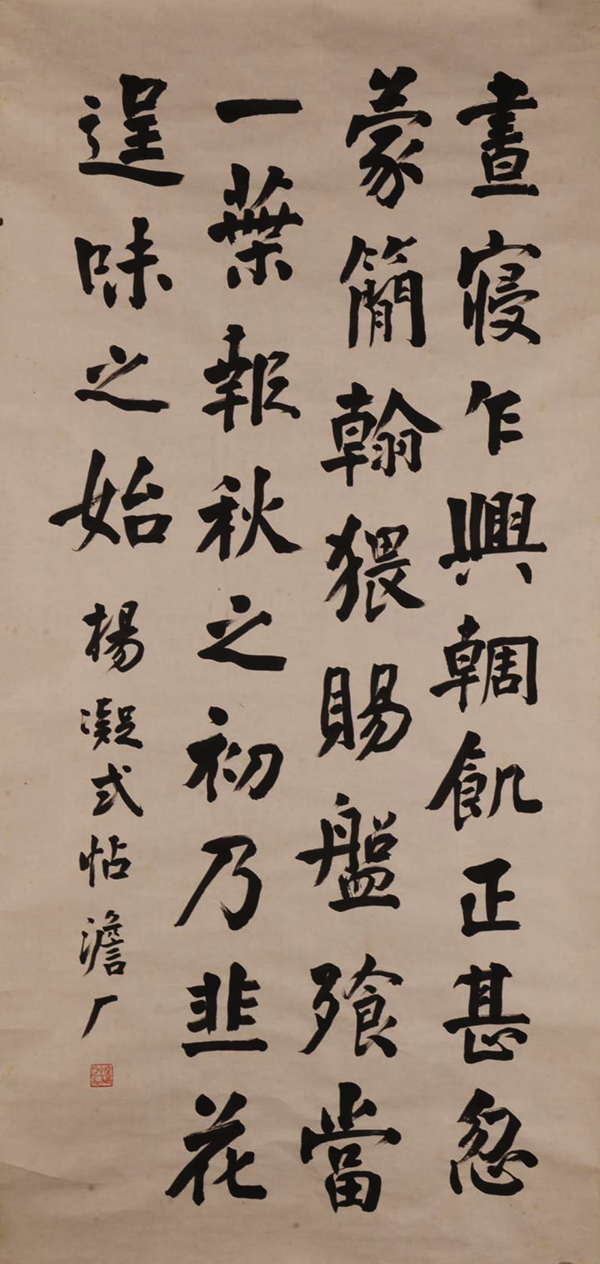 晝寢乍興輖飢正甚忽
蒙簡翰猥賜盤飱當
一葉報秋之初乃韭花
逞味之始 楊凝式帖 澹厂